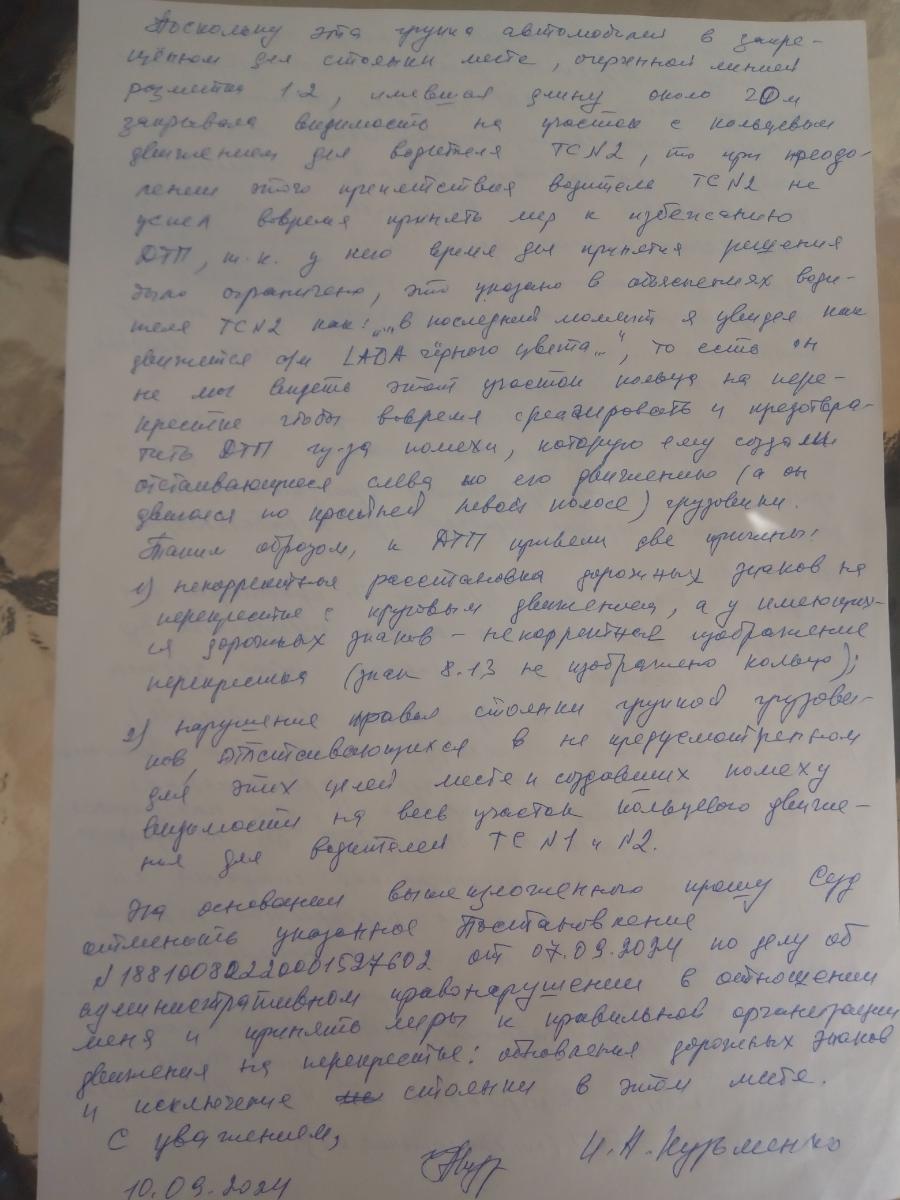 Поскольку эта группа автомобилей в запре-
щённом для стоянки месте, очерченной линией
разметки 1.2, имевшая длину около 20 м
закрывала видимость на участок с кольцевым
движением для водителя ТС N2, то при преодо-
лении этого препятствия водителе ТС N2 не
успел вовремя принять мер к избежанию
ДТП, т.к. у него время для принятия решения
было ограничено, это указано в объяснениях води-
теля ТС N2 как: „...в последний момент я увидел как
движется а/м LADA чёрного цвета...", то есть он
не мог видеть этот участок кольца на пере-
крестке чтобы вовремя среагировать и предотвра-
тить ДТП из-за помехи, которую ему создали
отстаивающиеся слева по его движению (а он
двигался по крайней левой полосе) грузовики.
Таким образом, к ДТП привели две причины:
1) некорректная расстановка дорожных знаков на
перекрестке с круговым движением, а у имеющих-
ся дорожных знаков – некорректное изображение
перекрестка (знак 8.13 не изображено кольцо);
2) нарушение правил стоянки группой грузови-
ков отстаивающихся в не предусмотренном
для этих целей месте и создавших помеху
видимости на весь участок кольцевого движе-
ния для водителей ТС N1 и N2.
На основании вышеизложенного прошу Суд
отменить указанное Постановление
N 18810082220001527602 от 07.09.2024 по делу об
административном правонарушении в отношении
меня и принять меры к правильной организации
движения на перекрестке: обновления дорожных знаков
и исключение стоянки в этом месте.
С уважением,
И.А. Кузьменко
10.09.2024